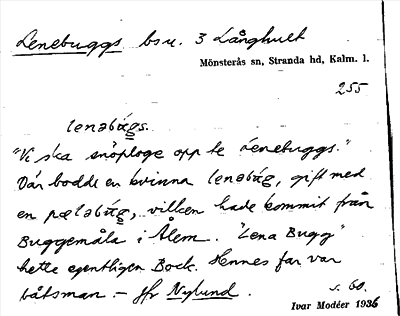 Lenebuggs bsu. 3 Långhult
Mönsterås sn, Stranda hd, Kalm. l.
255
lenəbɷgs.
"Vi ska snöploge opp te Lenebuggs."
Där bodde en kvinna lenəbɷg, gift med
en pæləbɷg, vilken hade kommit från
Buggemåla i Ålem. "Lena Bugg"
hette egentligen Bock. Hennes far var
båtsman. – Jfr Nylund. s. 60.
Ivar Modéer 1936